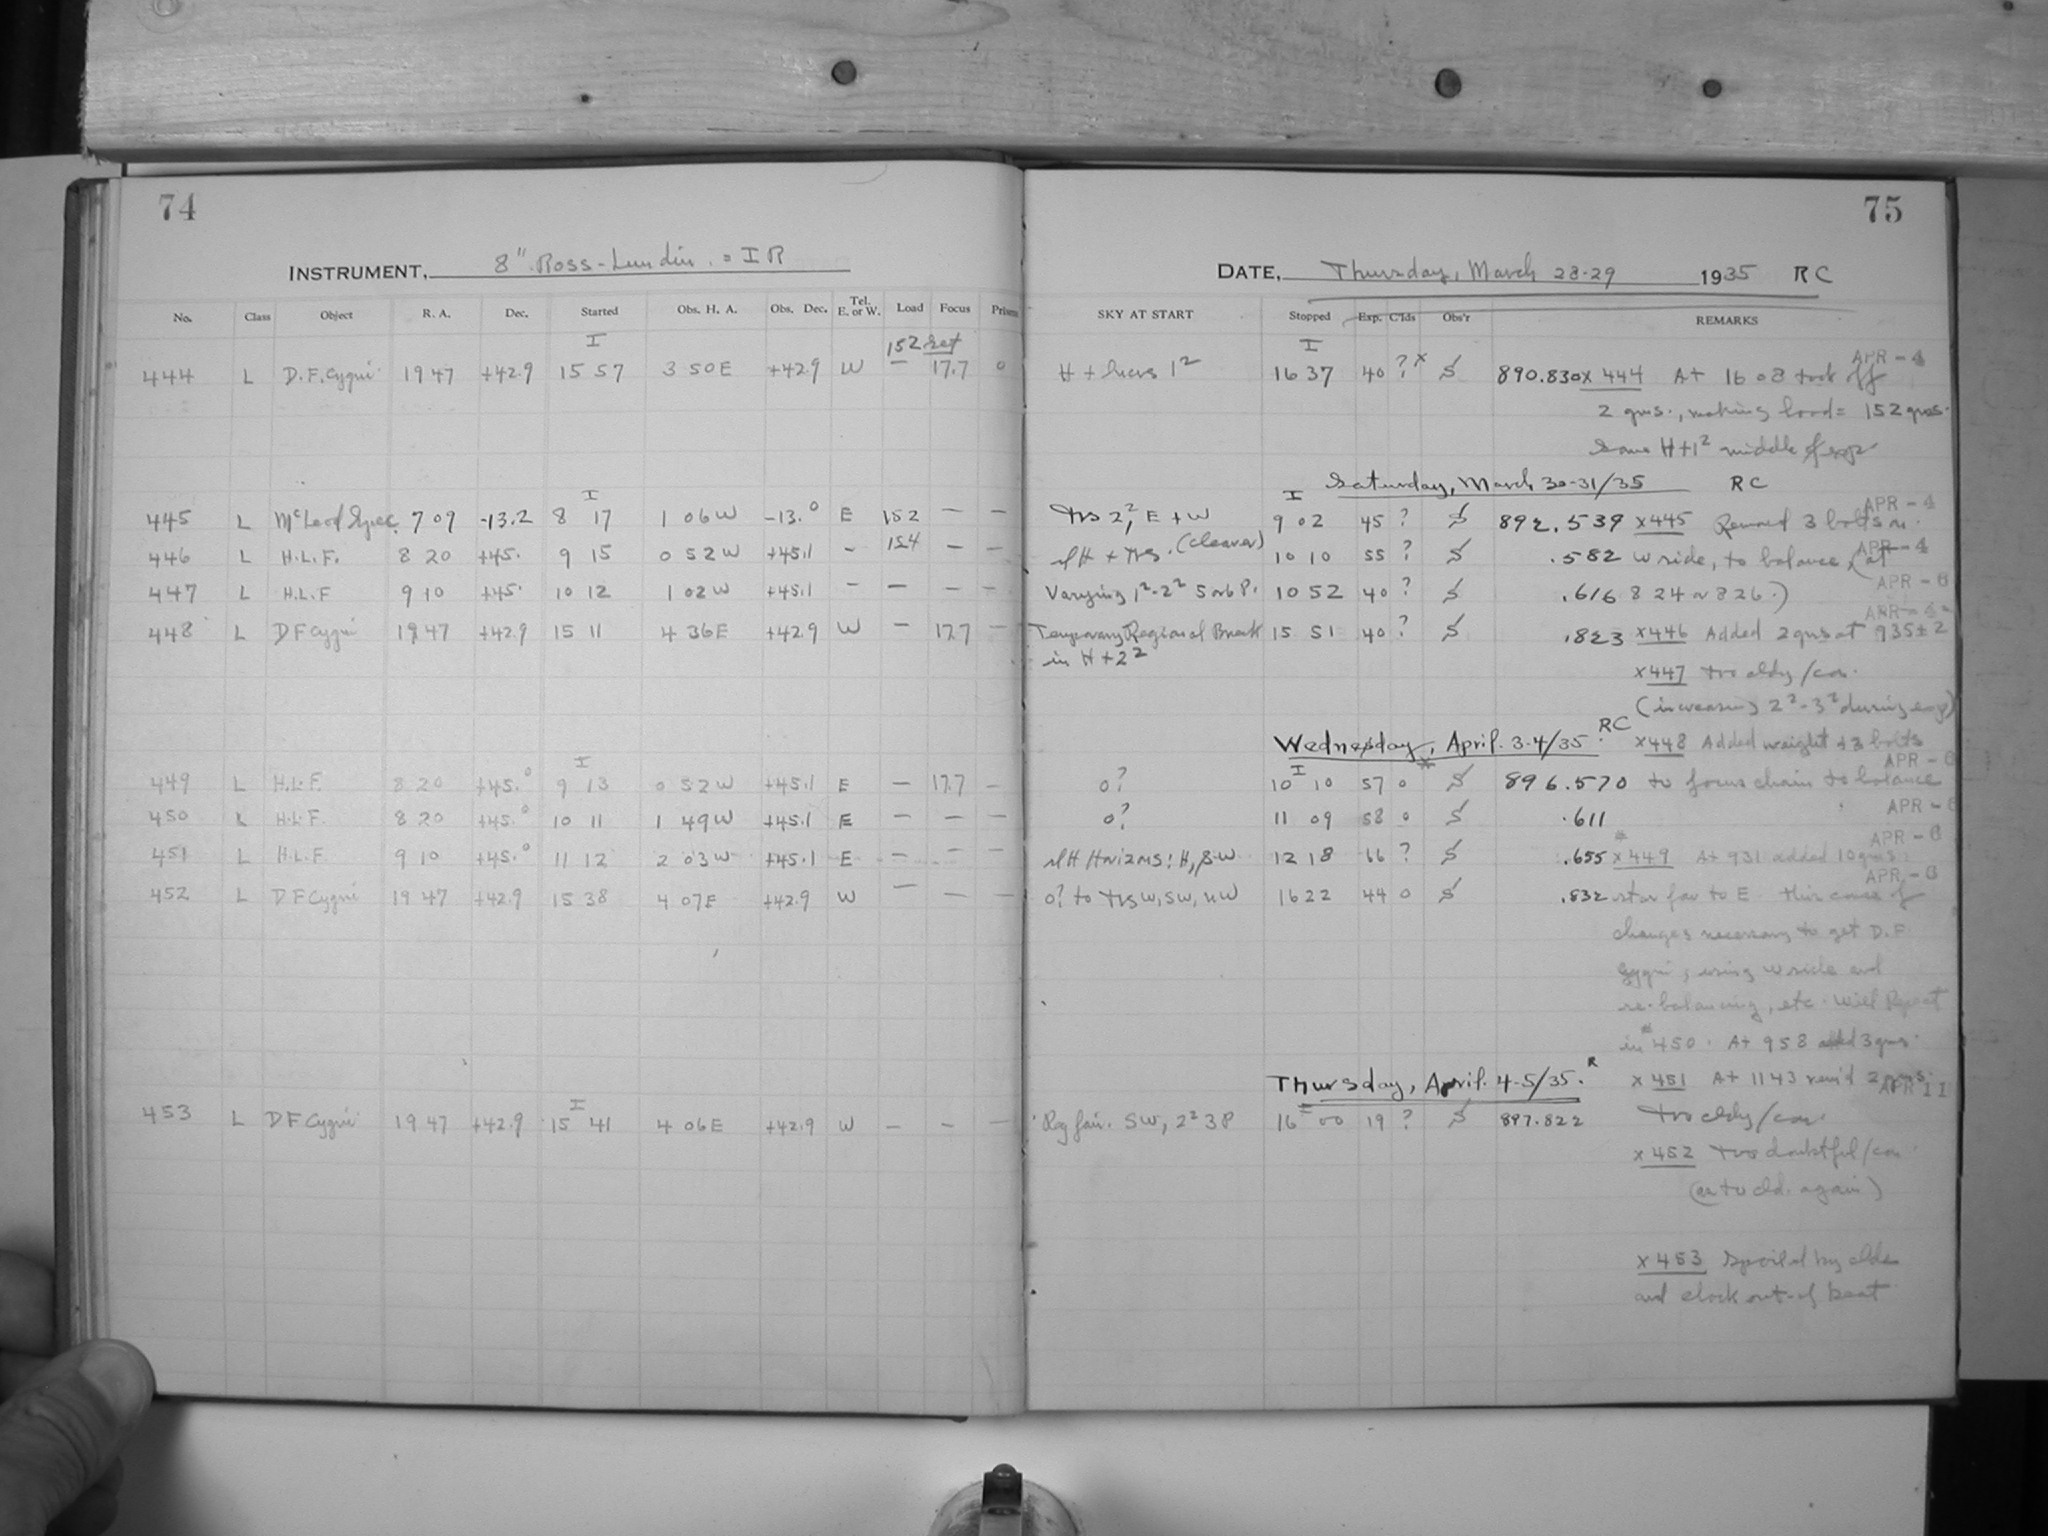 74
INSTRUMENT, 8" Ross-Lundin = I R
No. Class Object R. A. Dec. Started Obs. H. A. Obs. Dec. Tel. E. or W. Load Focus Prism
I 152
444 L D.F. Cygni 19 47 +42.9 15 57 3 50 E +42.9 W — 17.7 0
I
445 L McLeod Spec. 7 09 -13.2 8 17 1 06 W -13.0 E 152 — —
446 L H.L.F. 8 20 +45. 9 15 0 52 W +45.1 - 154 — —
447 L H.L.F 9 10 +45. 10 12 1 02 W +45.1 — — — —
448 L D F Cygni 19 47 +42.9 15 11 4 36 E +42.9 W — 17.7 —
I
449 L H.L.F. 8 20 +45.0 9 13 0 52 W +45.1 E — 17.7 —
450 L H.L.F. 8 20 +45.0 10 11 1 49 W +45.1 E — — —
451 L H.L.F. 9 10 +45.0 11 12 2 03 W +45.1 E — — —
452 L D F Cygni 19 47 +42.9 15 38 4 07 E +42.9 W — — —
I
453 L D F Cygni 19 47 +42.9 15 41 4 06 E +42.9 W — — —
75
DATE, Thursday, March 28-29 1935 RC
SKY AT START Stopped Exp. C'lds Obs'r REMARKS
I APR - 4
H + 1² 16 37 40 ?x S 890.830 x 444 At 16 08 took off
2 gms., making load = 152 gms.
Same H+1² middle of exp
I Saturday, March 30-31/35 RC
APR - 4
Trs 2², E + W 9 02 45 ? S 892.539 x445 3 bolts
H + Trs. (cleaner) 10 10 55 ? S .582 W side, to balance (at APR - 4
Varying 1²-2² 5 or 6 P. 10 52 40 ? S .616 8 24 or 8 26.) APR - 6
Temporary Regional Break 15 51 40 ? S .823 x446 Added 2 gms at 9 35 ± 2 APR - 4
in H + 2²
x447 Too cldy / can.
(increasing 2²-3² during exp)
Wednesday, April. 3-4/35. RC x448 Added weight + 3 bolts
I APR - 6
0? 10 10 57 0 S 896.570 to focus chain to balance
0? 11 09 58 0 S .611 APR - 6
H Horizons: H, S-W 12 18 66 ? S .655 x 449 At 931 added 10 gms. APR - 6
0? to Trs W, SW, NW 16 22 44 0 S .832 star far to E. This cause of APR - 6
changes necessary to get D.F
Cygni, using W side and
re-balancing, etc. Will Repeat
in 450. At 9 58 added 3 gms.
Thursday, April. 4-5/35. R x 451 At 11 43 rem'd 2 gms.
APR 11
Reg fair. SW, 2² 3P 16 00 19 ? S 897.822 Too cldy / can
x 452 Too doubtful / can
(as to cld. again)
x 453 Spoiled by clds
and clock out-of beat